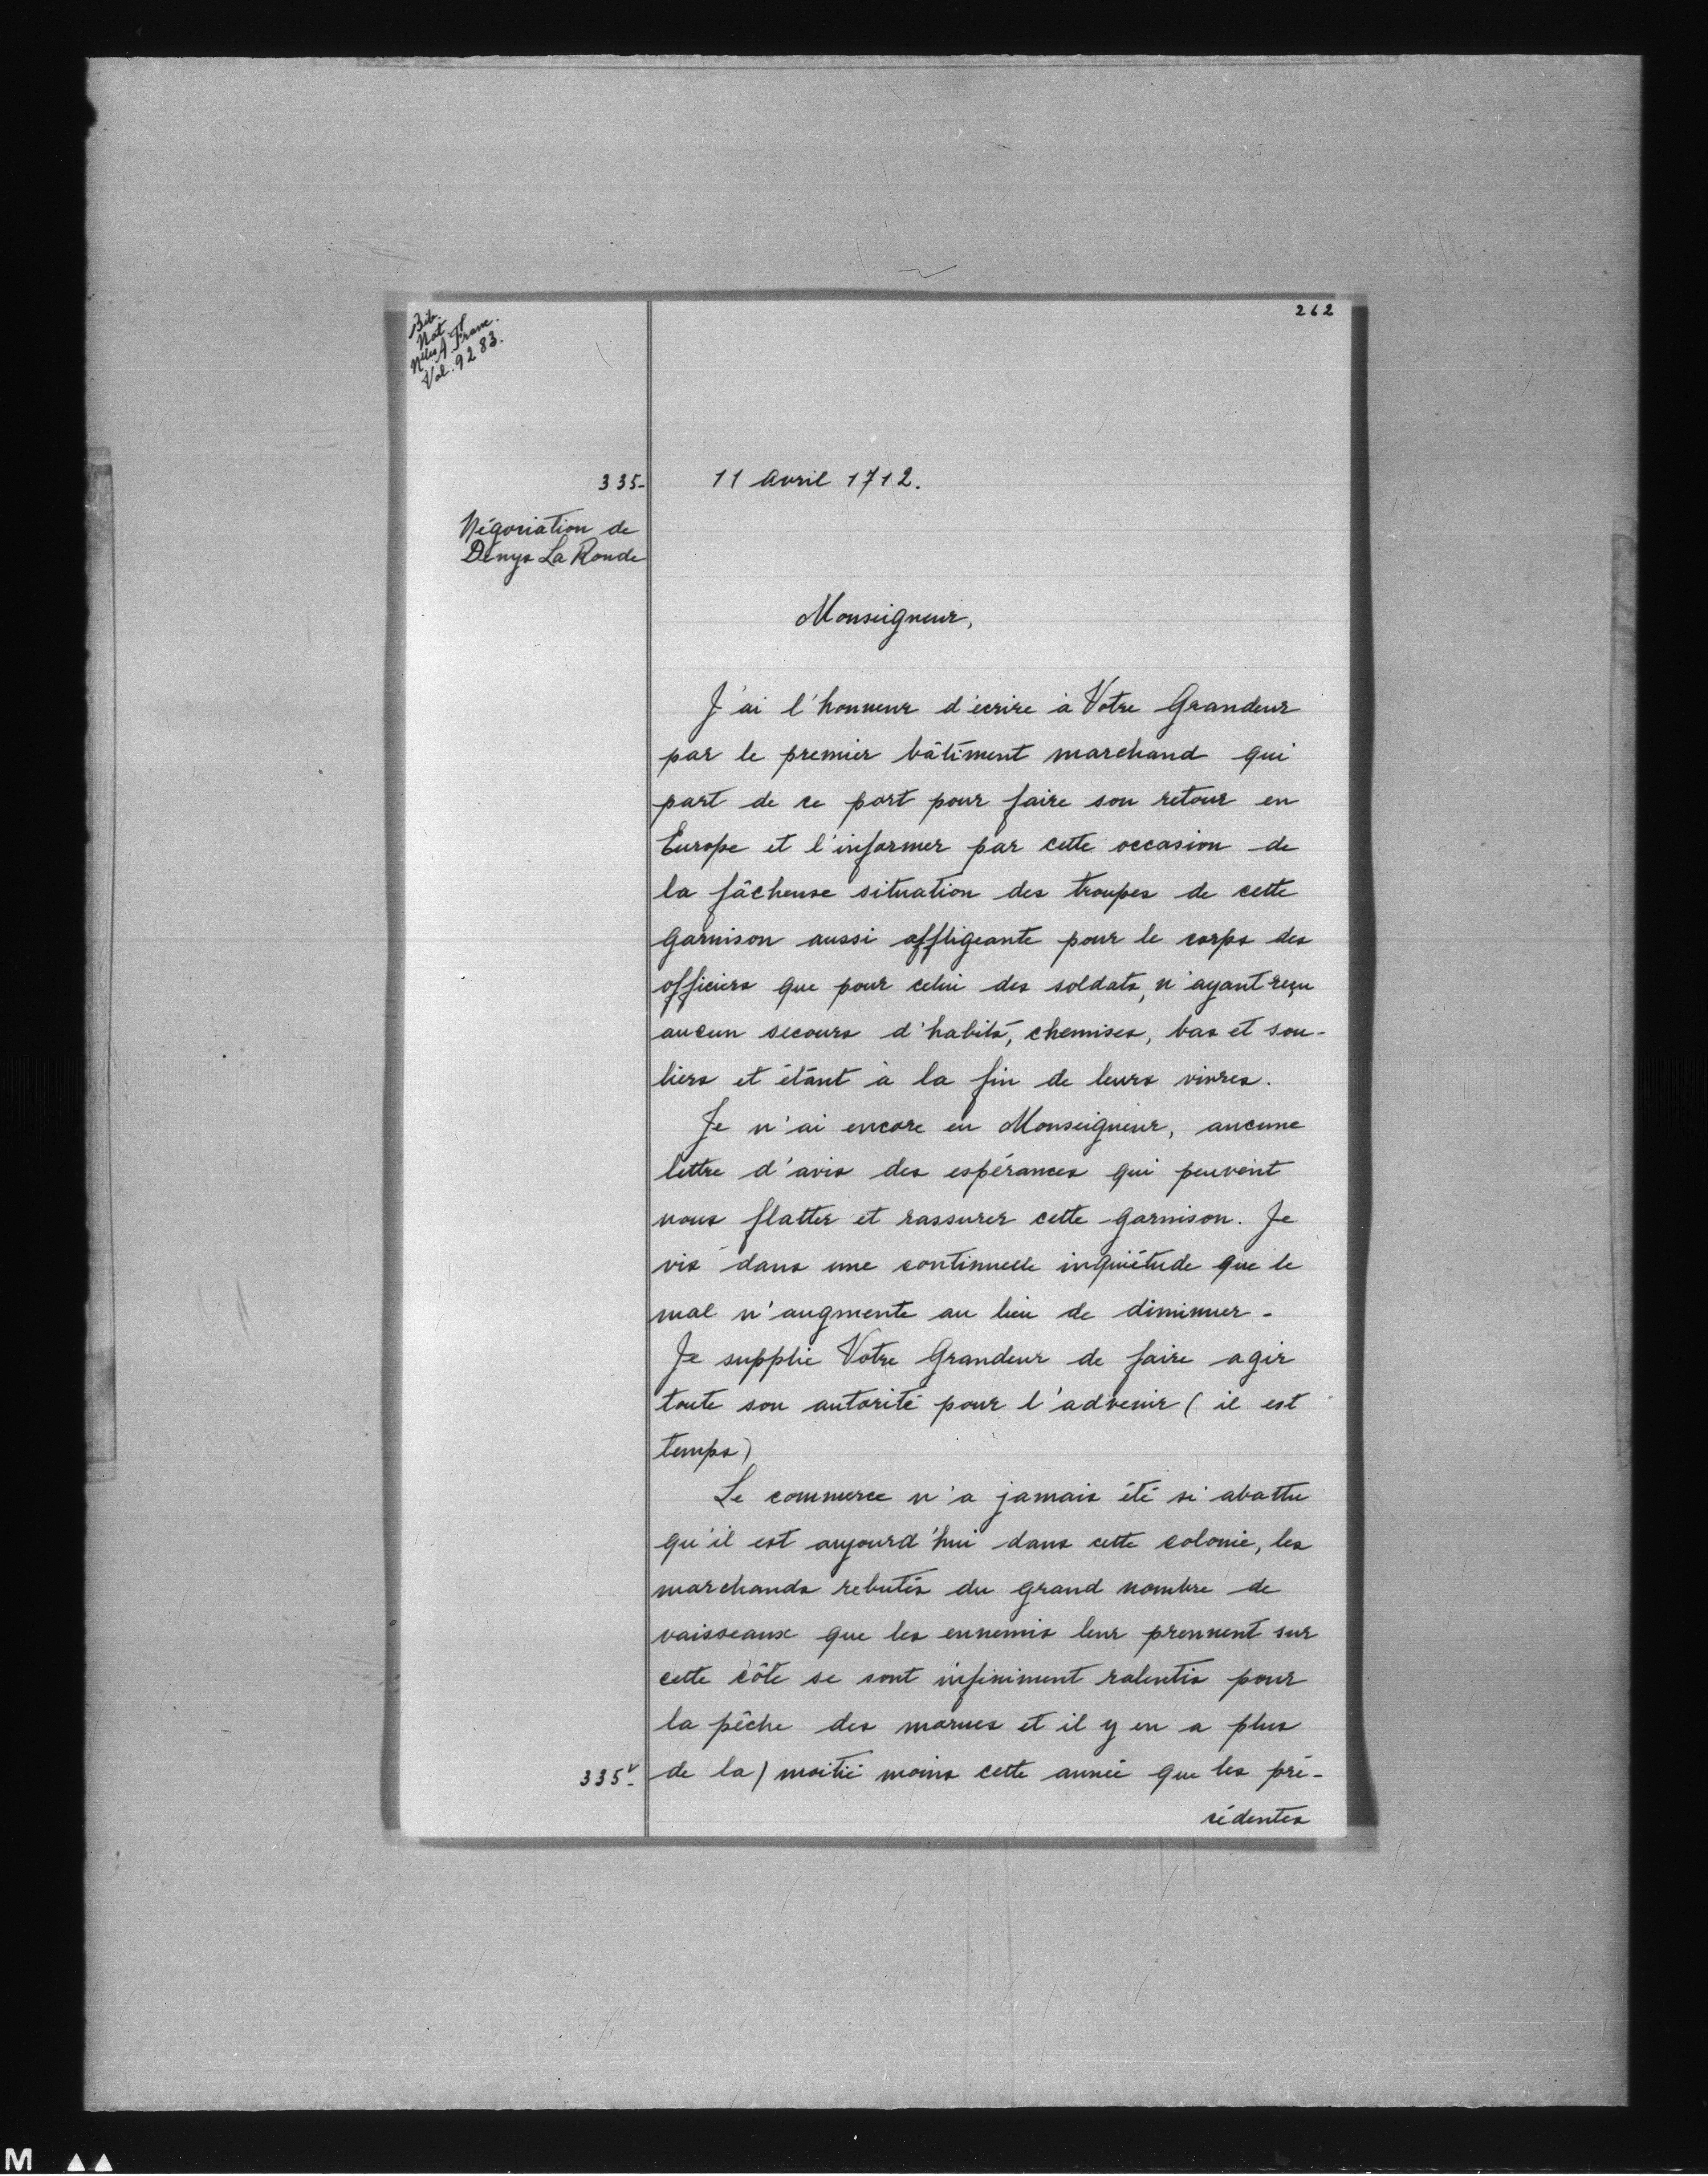 262
Bib.
Nat.
Nlles A. Franc.
Vol. 9283.
335-
11 avril 1712.
Négociation de
Denys La Ronde
Monseigneur,
J'ai l'honneur d'écrire à Votre Grandeur
par le premier bâtiment marchand qui
part de ce port pour faire son retour en
Europe et l'informer par cette occasion de
la fâcheuse situation des troupes de cette
garnison aussi affligeante pour le corps des
officiers que pour celui des soldats, n'ayant reçu
aucun secours d'habits, chemises, bas et sou-
liers et étant à la fin de leurs vivres.
Je n'ai encore eu Monseigneur, aucune
lettre d'avis des espérances qui peuvent
nous flatter et rassurer cette garnison. Je
vis dans une continuelle inquiétude que le
mal n'augmente au lieu de diminuer.
Je supplie Votre Grandeur de faire agir
toute son autorité pour l'advenir (il est
temps)
Le commerce n'a jamais été si abattu
qu'il est aujourd'hui dans cette colonie, les
marchands rebutés du grand nombre de
vaisseaux que les ennemis leur prennent sur
cette côte se sont infiniment ralentis pour
la pêche des morues et il y en a plus
335v-
de la) moitié moins cette année que les pré-
cédentes
M